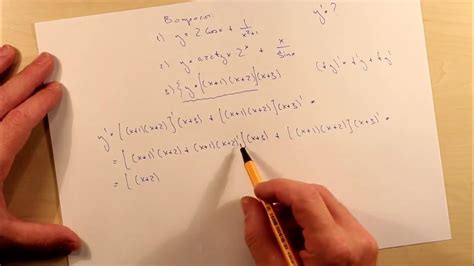 Вопросы:
y' = ?
1) y = 2cosx + 1/(x²+1)
2) y = arctg x · 2ˣ + x/sinx
3) { y = [(x+1)(x+2)](x+3)
(fg)' = f'g + fg'
y' = [(x+1)(x+2)]'(x+3) + [(x+1)(x+2)](x+3)' =
= [(x+1)'(x+2) + (x+1)(x+2)'](x+3) + [(x+1)(x+2)](x+3)' =
= [(x+2)